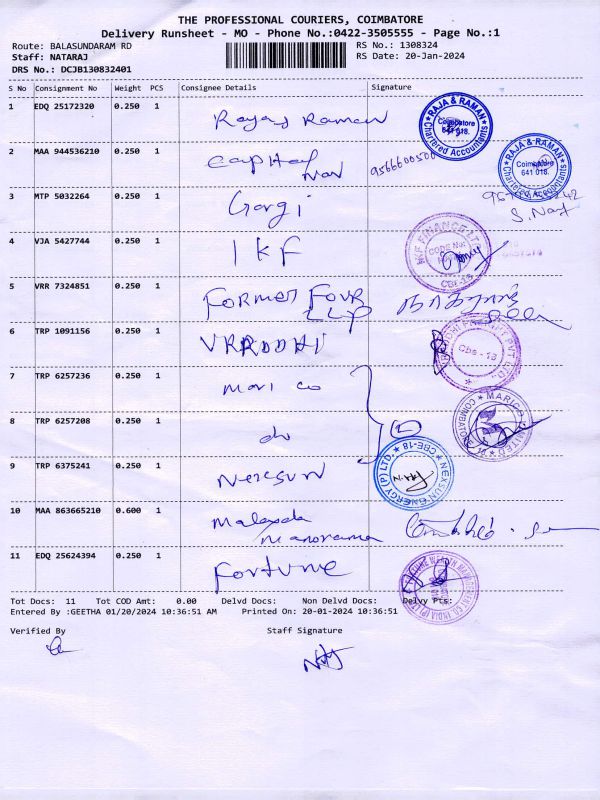 THE PROFESSIONAL COURIERS, COIMBATORE
Delivery Runsheet - MO - Phone No.:0422-3505555 - Page No.:1
Route: BALASUNDARAM RD RS No.: 1308324
Staff: NATARAJ RS Date: 20-Jan-2024
DRS No.: DCJB130832401
S No Consignment No Weight PCS Consignee Details Signature
1 EDQ 25172320 0.250 1 Raja & Raman RAJA & RAMAN Coimbatore 641 018. Chartered Accountants
2 MAA 944536210 0.250 1 Capital 9566600500 RAJA & RAMAN Coimbatore 641 018. Chartered Accountants
3 MTP 5032264 0.250 1 Gargi S. Nay
4 VJA 5427744 0.250 1 IKF IKF FINANCE LTD CODE No: CBE-18
5 VRR 7324851 0.250 1 Former Four LLP
6 TRP 1091156 0.250 1 VRRDDHI PVT LTD Cbe - 18
7 TRP 6257236 0.250 1 Mari co
8 TRP 6257208 0.250 1 do 2 MARICO LIMITED COIMBATORE
9 TRP 6375241 0.250 1 Nexsun NEXSUN ENERGY (P) LTD. CBE-18
10 MAA 863665210 0.600 1 Malayala Manorama
11 EDQ 25624394 0.250 1 Fortune
Tot Docs: 11 Tot COD Amt: 0.00 Delvd Docs: Non Delvd Docs: Delvy Pts:
Entered By :GEETHA 01/20/2024 10:36:51 AM Printed On: 20-01-2024 10:36:51
Verified By Staff Signature